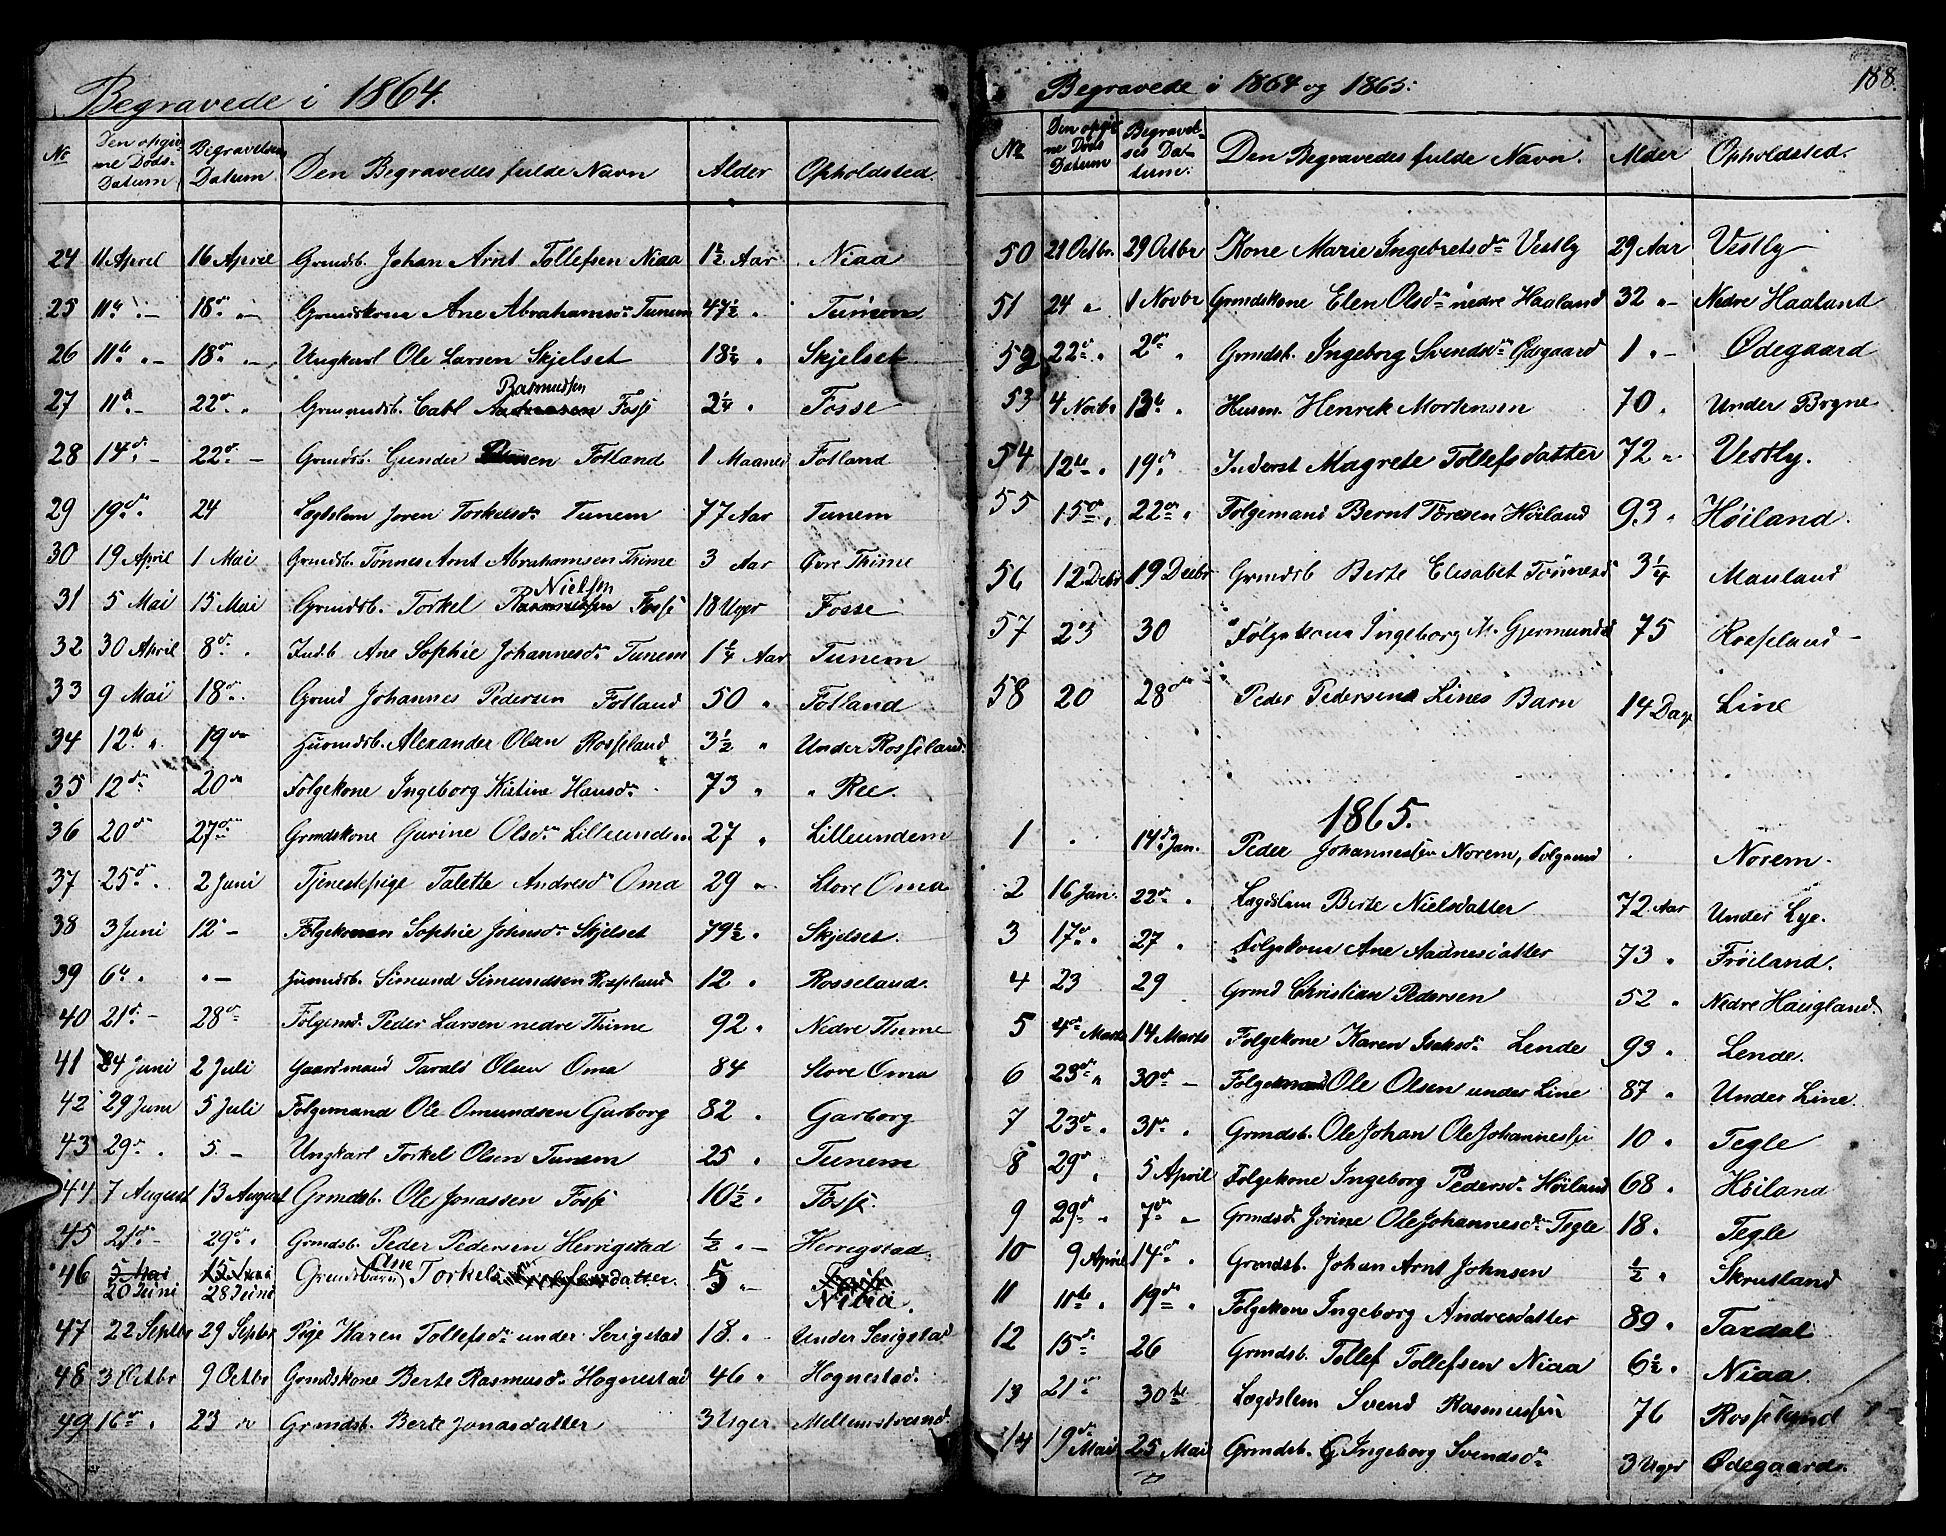 Begravede i 1864.
No Den opgivne Døds-Datum Begravelses Datum Den Begravedes fulde Navn Alder Opholdsted.
24 11 April 16 April Grmdsb. Johan Arnt Tollefsen Niaa 1½ Aar Niaa
25 11te " - 18de " - Grmdskone Ane Abrahamsdr Tunem 47½ " Tunem
26 11te " - 18de " - Ungkarl Ole Larsen Skjelset 18½ " Skjelset
27 11te - 22de " Grmandsb. Carl Rasmussen Fosse 2¼ " Fosse
28 14de - 22de - Grmdsb. Gunder Fotland 1 Maaned Fotland
29 19de 24 Lægdslem Joren Torkelsdr Tunem 77 Aar Tunem
30 19 April 1 Mai Grmdsb. Tønnes Arnt Abrahamsen Thime 3 Aar Øvre Thime
31 5 Mai 15 Mai Grmdsb. Torkel Nielsen Fosse 18 Uger Fosse
32 30 April 8de " Indb Ane Sophie Johannesdr Tunem 1¼ Aar Tunem
33 9 Mai 18de " Grmd Johannes Pedersen Fotland 50 " Fotland
34 12te " 19de Husmdsb. Alexander Olsen Rosseland 3½ " Under Rosseland.
35 12de 20de Folgekone Ingeborg Kistine Hansdr 73 " " Ree.
36 20de 27de Grmdskone Gurine Olsdr Lilleundem 27 " Lilleundem
37 25de " 2 Juni Tjenestepige Talette Andresdr Oma 29 " Store Oma
38 3 Juni 12 - Folgekonen Sophie Johnsdr Skjelset 79½ " Skjelset.
39 6te " " - Husmdsb. Simund Simundsen Rosseland 12 " Rosseland.
40 21de - 28de Folgemd. Peder Larsen nedre Thime 92 " Nedre Thime
41 24 Juni 2 Juli Gaardmand Tarald Olsen Oma 84 Store Oma
42 29 Juni 5 Juli Folgemand Ole Omundsen Garborg 82 " Garborg
43 29de " 5 - Ungkarl Torkel Olsen Tunem 25 " Tunem
44 7 August 13 August Grmdsb. Ole Jonassen Fosse 10½ " Fosse.
45 21de - 29de " Grmdsb. Peder Pedersen Herrigstad ½ " - Herrigstad
46 5 Mai 15 Juni 20 Juni 28 Juni Grmdsbarn Ane Torkels datter. 5 " - Niaa.
47 22 Septbr 29 Septbr Pige Karen Tollefsdr under Serigstad 18. " Under Serigstad
48 3 Octbr 9 Octbr Grmdskone Berte Rasmusdr Hognestad 46 " Hognestad.
49 16de " 23 do Grmdsb. Berte Jonasdatter 3 Uger. Mellemstrand
Begravede i 1864 og 1865. 188.
No Den opgivne Døds Datum Begravelses Datum. Den Begravedes fulde Navn. Alder Opholdsted.
50 21 Octbr. 29 Octbr Kone Marie Ingebretsdr Vestly 29 Aar Vestly
51 24 " 1 Novbr Grmdskone Elen Olsdr nedre Haaland 32 " - Nedre Haaland
52 22de " 2de " Grmdsb. Ingeborg Svendsdr Ødegaard 1 " - Ødegaard
53 4 Novbr 13te " Husm. Henrek Mortensen 70 " Under Bryne
54 12te " 19de Inderst Magrete Tollefsdatter 72 " Vestly.
55 15de " 22de " Folgemand Bernt Toresen Høiland 93 " Høiland.
56 12 Decbr 19 Decbr Grmdsb Berte Elisabet Tønnesd 3¼ Mauland
57 23 30 Folgekone Ingeborg M. Gjermundsd 75 Rosseland -
58 20 28de Peder Pedersens Lines Barn 14 Dage Line
1865.
1 " 14de Jan. Peder Johannessen Norem, Folgemd " Norem.
2 16 Jan. 22de " Lægdslem Berte Nielsdatter 72 Aar Under Lye.
3 17de " 27 " Folgekone Ane Aadnesdatter 73 " Frøiland.
4 23 29 Grmd Christian Pedersen 52 " Nedre Haugland.
5 4de Marts 14 Marts Folgekone Karen Isaksdr Lende 93 " Lende.
6 23de " 30de - Folgemand Ole Olsen under Line 87 " Under Line.
7 23de " 31te " Grmdsb. Ole Johan Ole Johannessen 10 " Tegle
8 29de " 5 April Folgekone Ingeborg Pedersdr Høiland 68 " Høiland
9 29de " 7de " Grmdsd. Jorine Ole Johannesdr Tegle 18 " Tegle
10 9 April 14de " Grmdsb. Johan Arnt Johnsen ½ " Skrudland
11 11te " 19de " Folgekone Ingeborg Andresdatter 89 " Taxdal
12 15de 26 Grmdsb. Tollef Tollefsen Niaa 6½ " Niaa
13 21de 30te Lægdslem Svend Rasmussen 76 Rosseland
14 19de Mai 25 Mai Grmdsb. Ingeborg Svendsdr 3 Uger Ødegaard.